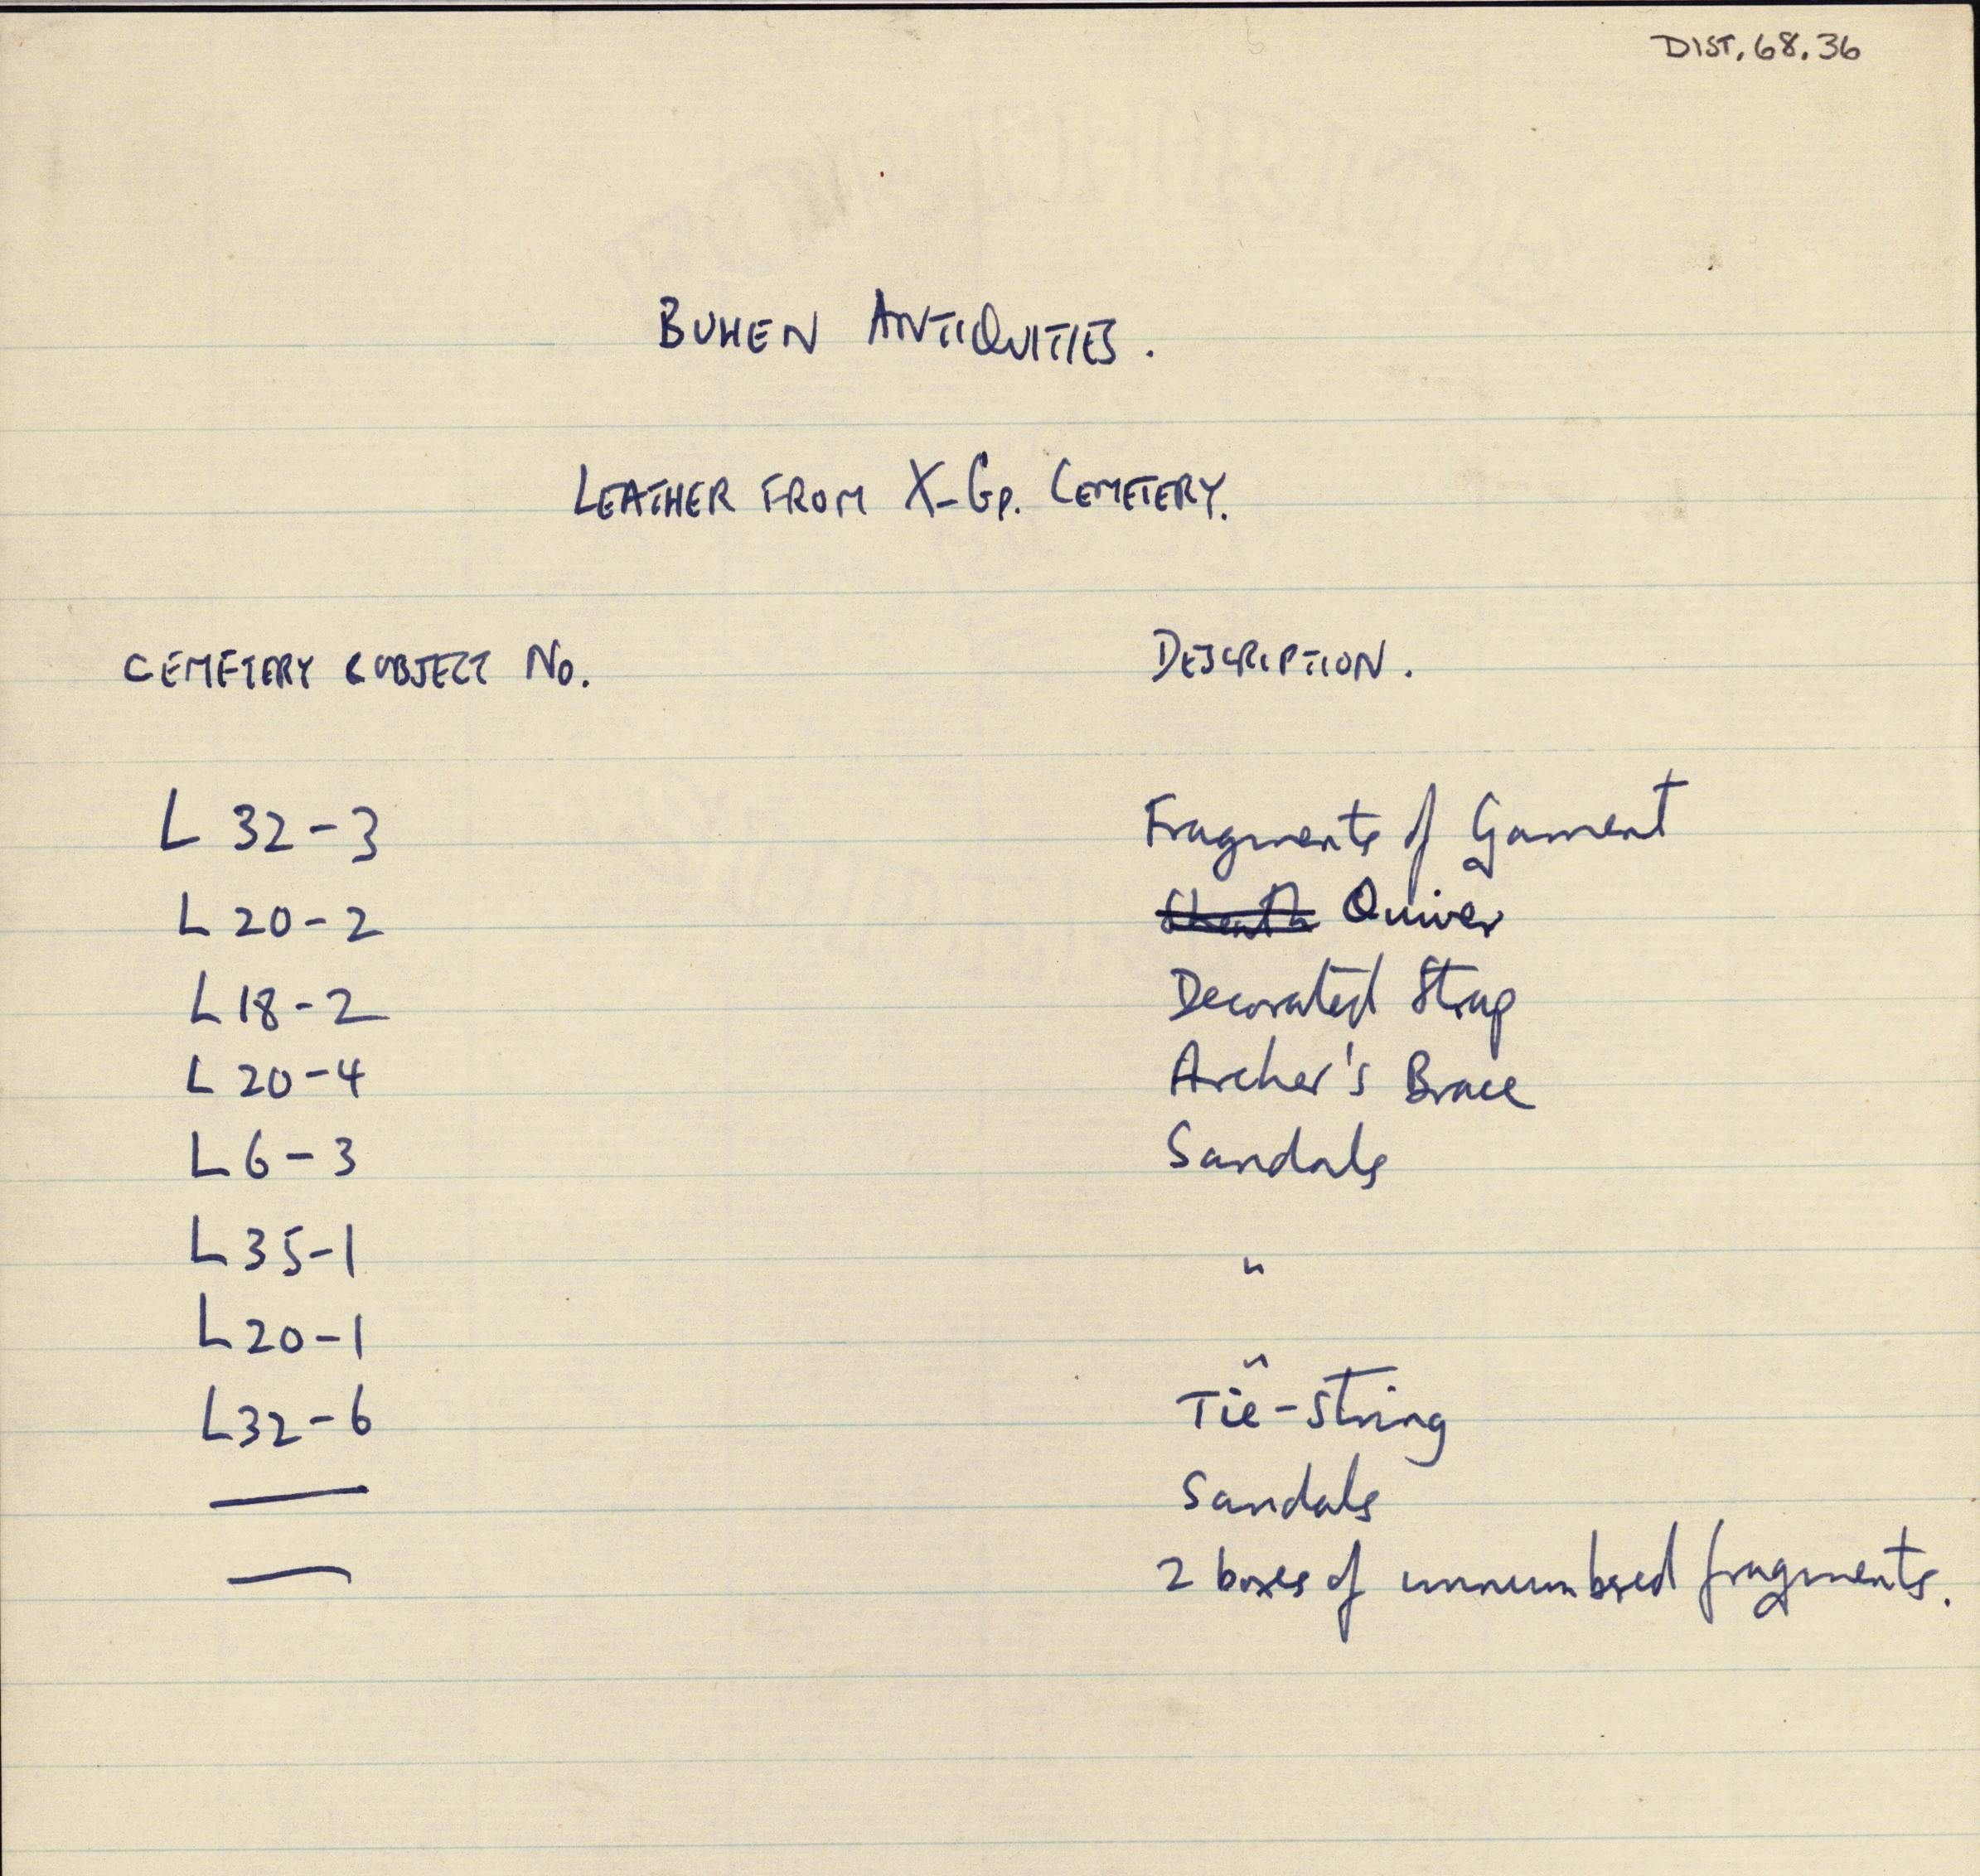 DIST. 68.36
BUHEN ANTIQUITIES.
LEATHER FROM X-GP. CEMETERY.
CEMETERY & OBJECT No. DESCRIPTION.
L 32-3 Fragments of Garment
L 20-2 Sheath Quiver
L 18-2 Decorated Strap
L 20-4 Archer's Brace
L 6-3 Sandals
L 35-1 "
L 20-1 "
L 32-6 Tie-string
— Sandals
— 2 boxes of unnumbered fragments.